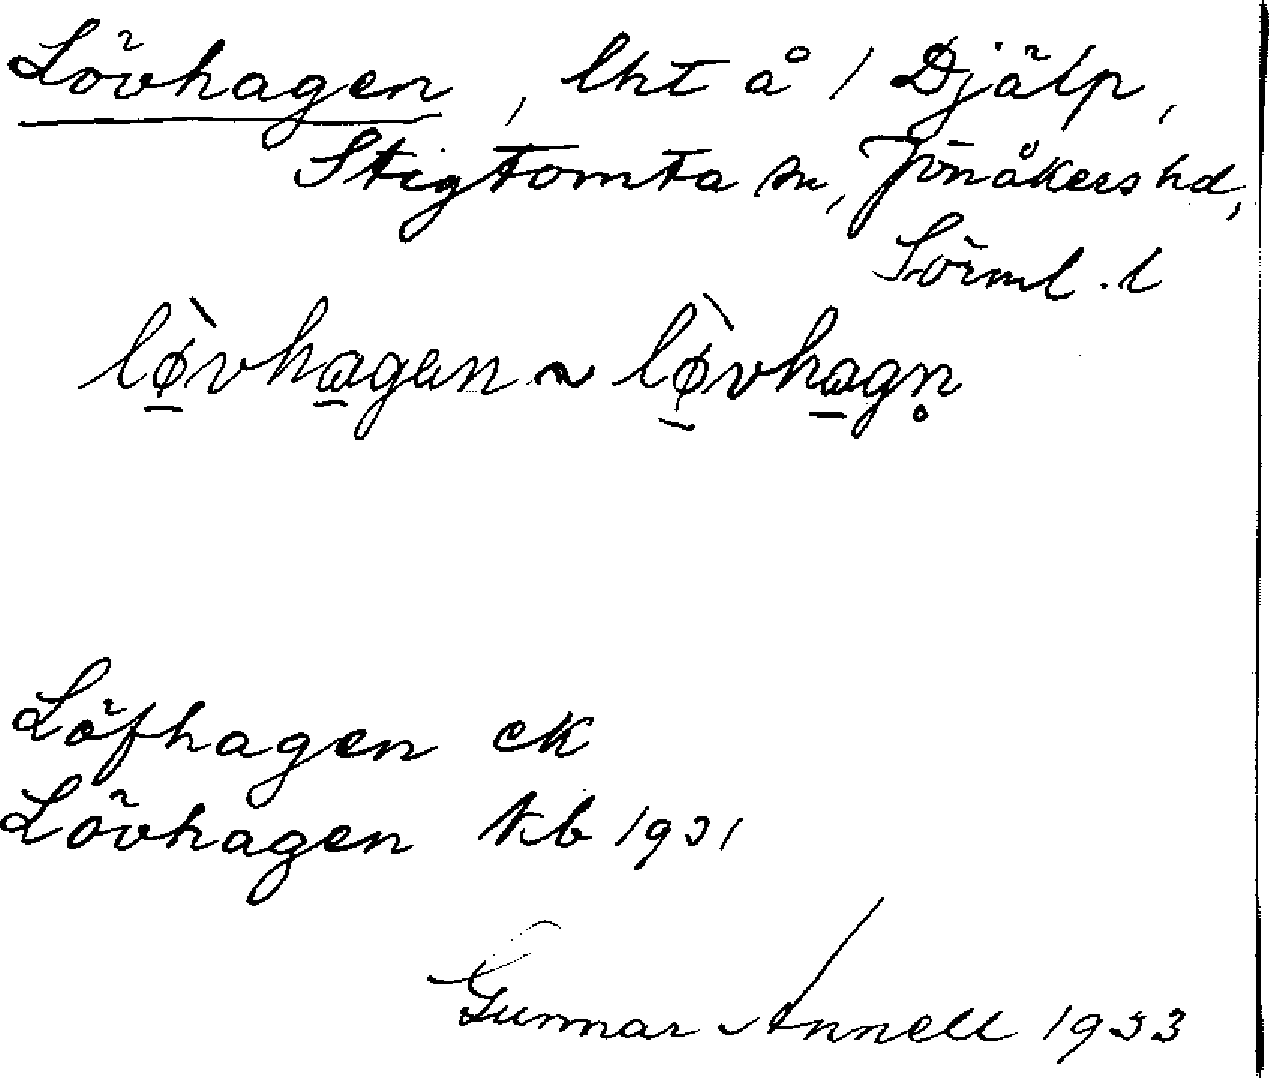 Lövhagen, lht å 1 Djälp,
Stigtomta sn, Jönåkers hd,
Sörml. l
lø̠̀vha̠gen ~ lø̠̀vha̠gn̥
Löfhagen ek
Lövhagen kb 1931
Gunnar Annell 1933